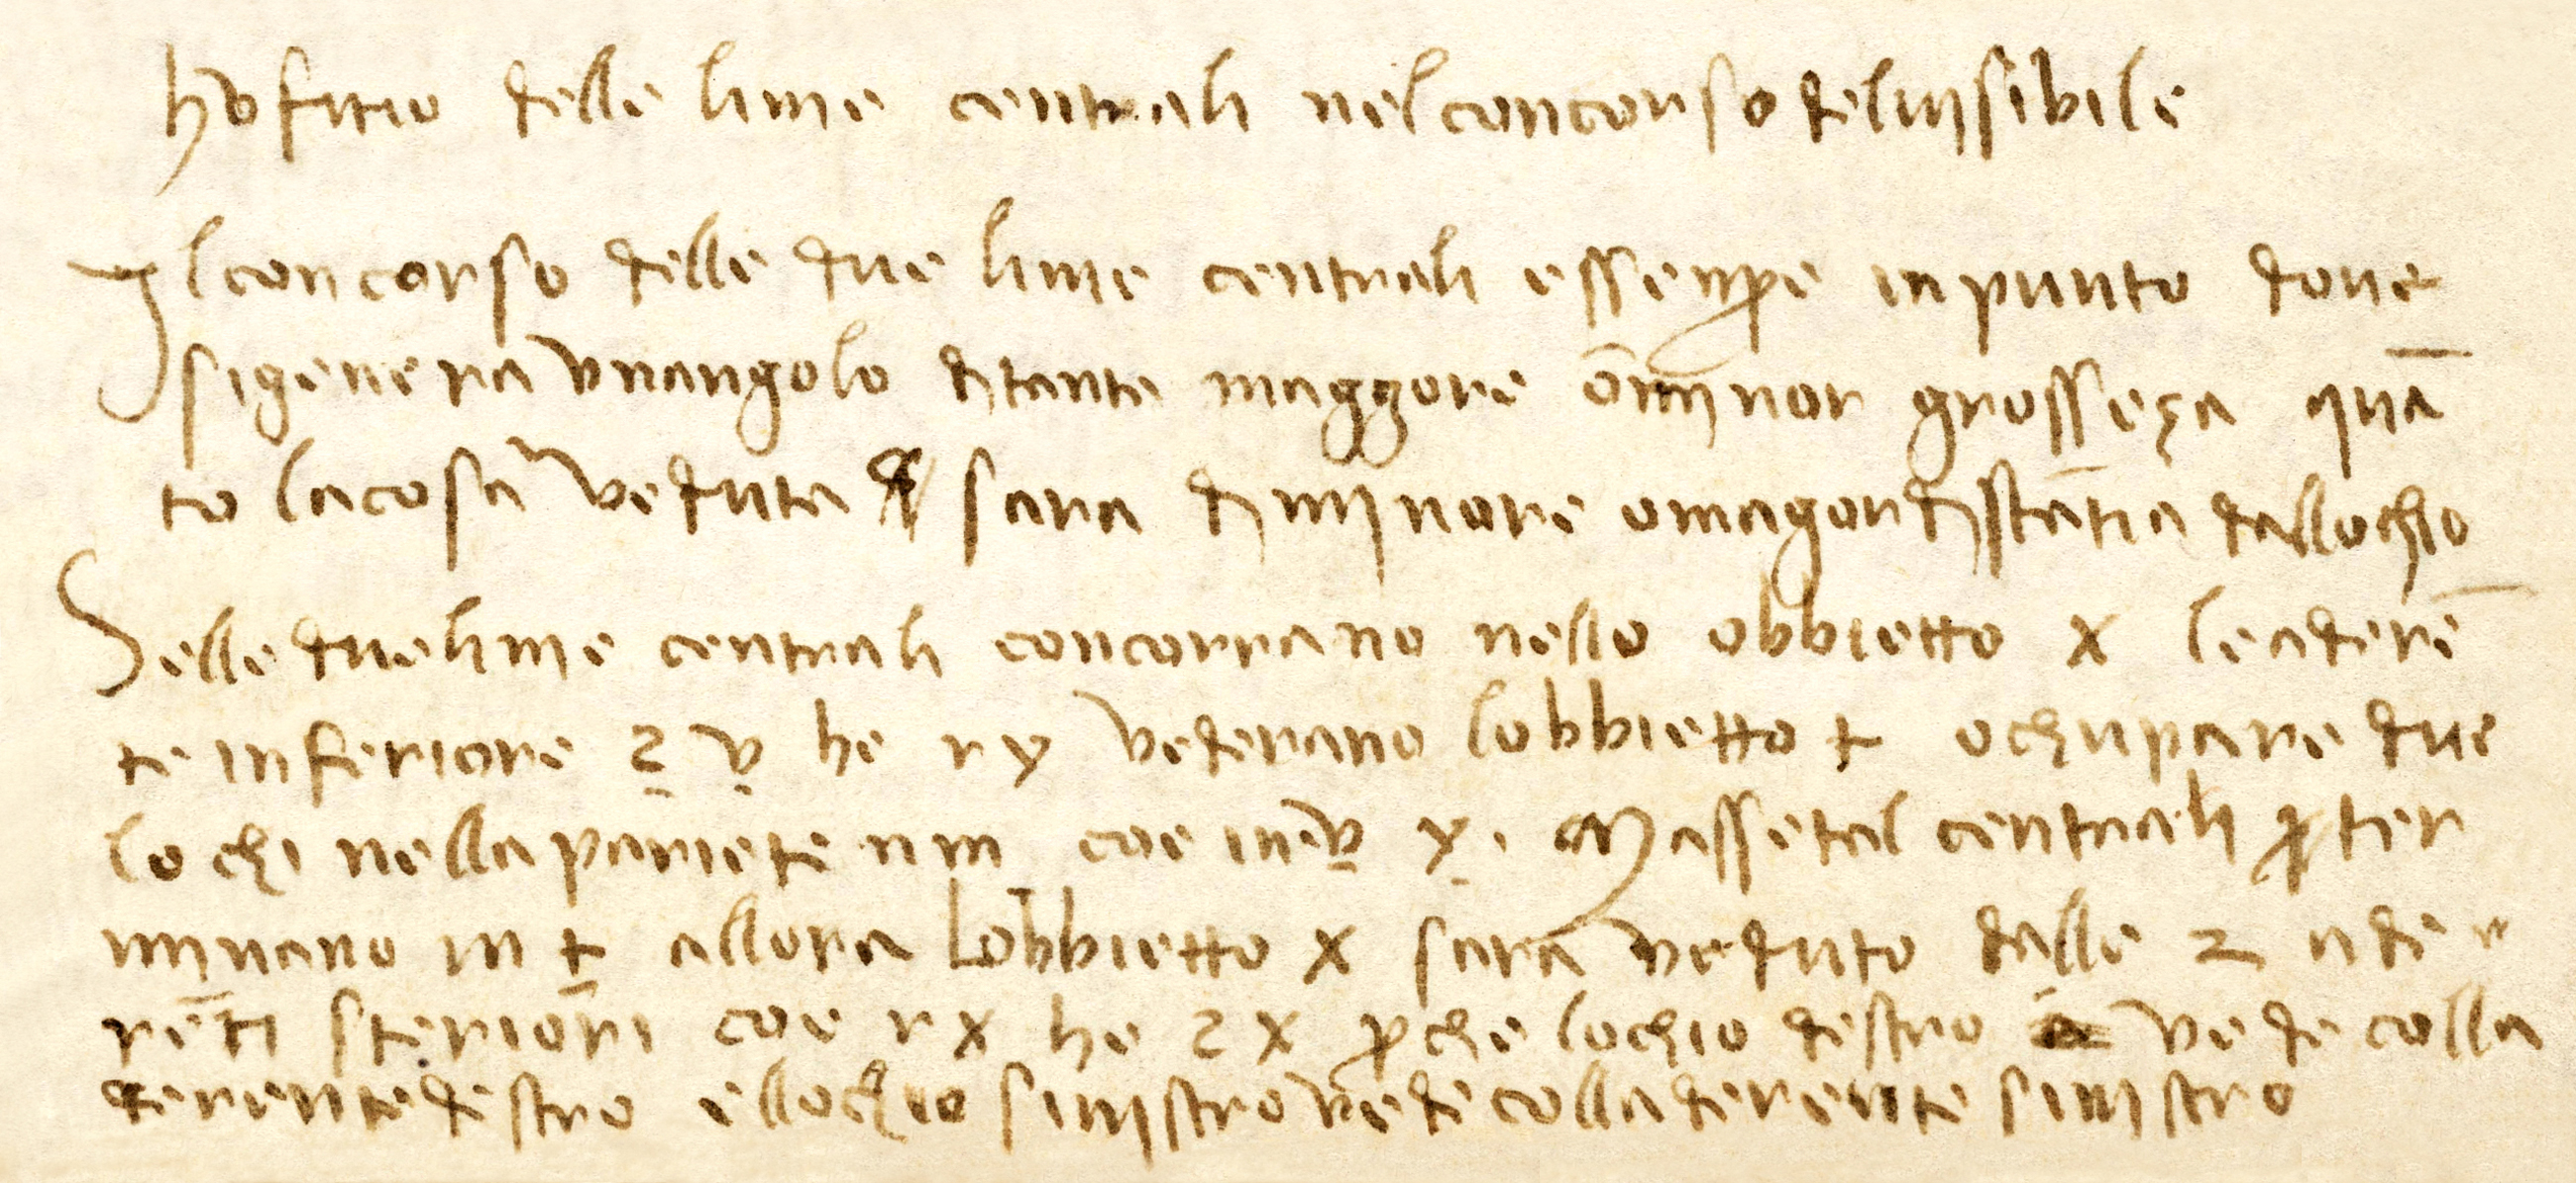 hofitio delle linie centrali nel concorso deluisibile
Il concorso delle due linie centrali essenpre in punto doue
si genera vnangolo di tanta maggore o minor grosseza quā
to la cosa veduta sara di minore o magor distātia dallochio
Selle due linie centrali concorrano nello obbietto x le aderē
te inferiore 2 v he r y vederano lobbietto + ochupare due
lochi nella pariete n m coe in v y. Ma sse tal centrali ter
minano in + allora lobbietto x sara veduto dalle 2 ade
rēti steriori coe r x he 2 x perche lochio destro vede colla
derente destro ellochio sinistro vede colladerente sinistro